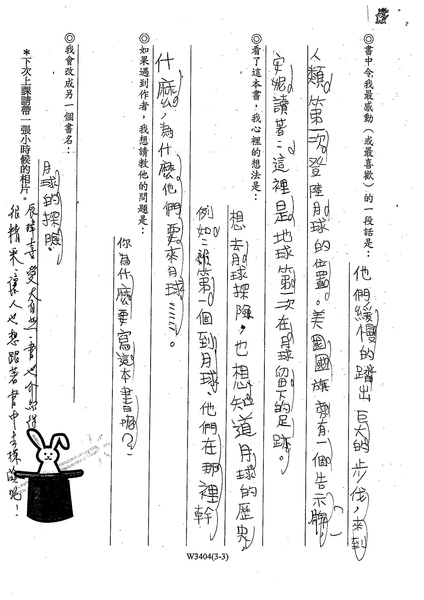 ◎書中令我最感動（或最喜歡）的一段話是：
他們緩慢的踏出巨大的步伐，來到
人類第一次登陸月球的位置。美國國旗旁有一個告示牌，
安妮讀著：這裡是地球第一次在月球留下的足跡。
◎看了這本書，我心裡的想法是：
想去月球探險，也想知道月球的歷史
例如：誰第一個到月球、他們在那裡幹
什麼，為什麼他們要來月球……。
◎如果遇到作者，我想請教他的問題是：
你為什麼要寫這本書呢？
◎我會改成另一個書名：
月球的探險。
＊下次上課請帶一張小時候的相片。
很精采，讓人也想跟著書中去探險呢！
W3404(3-3)